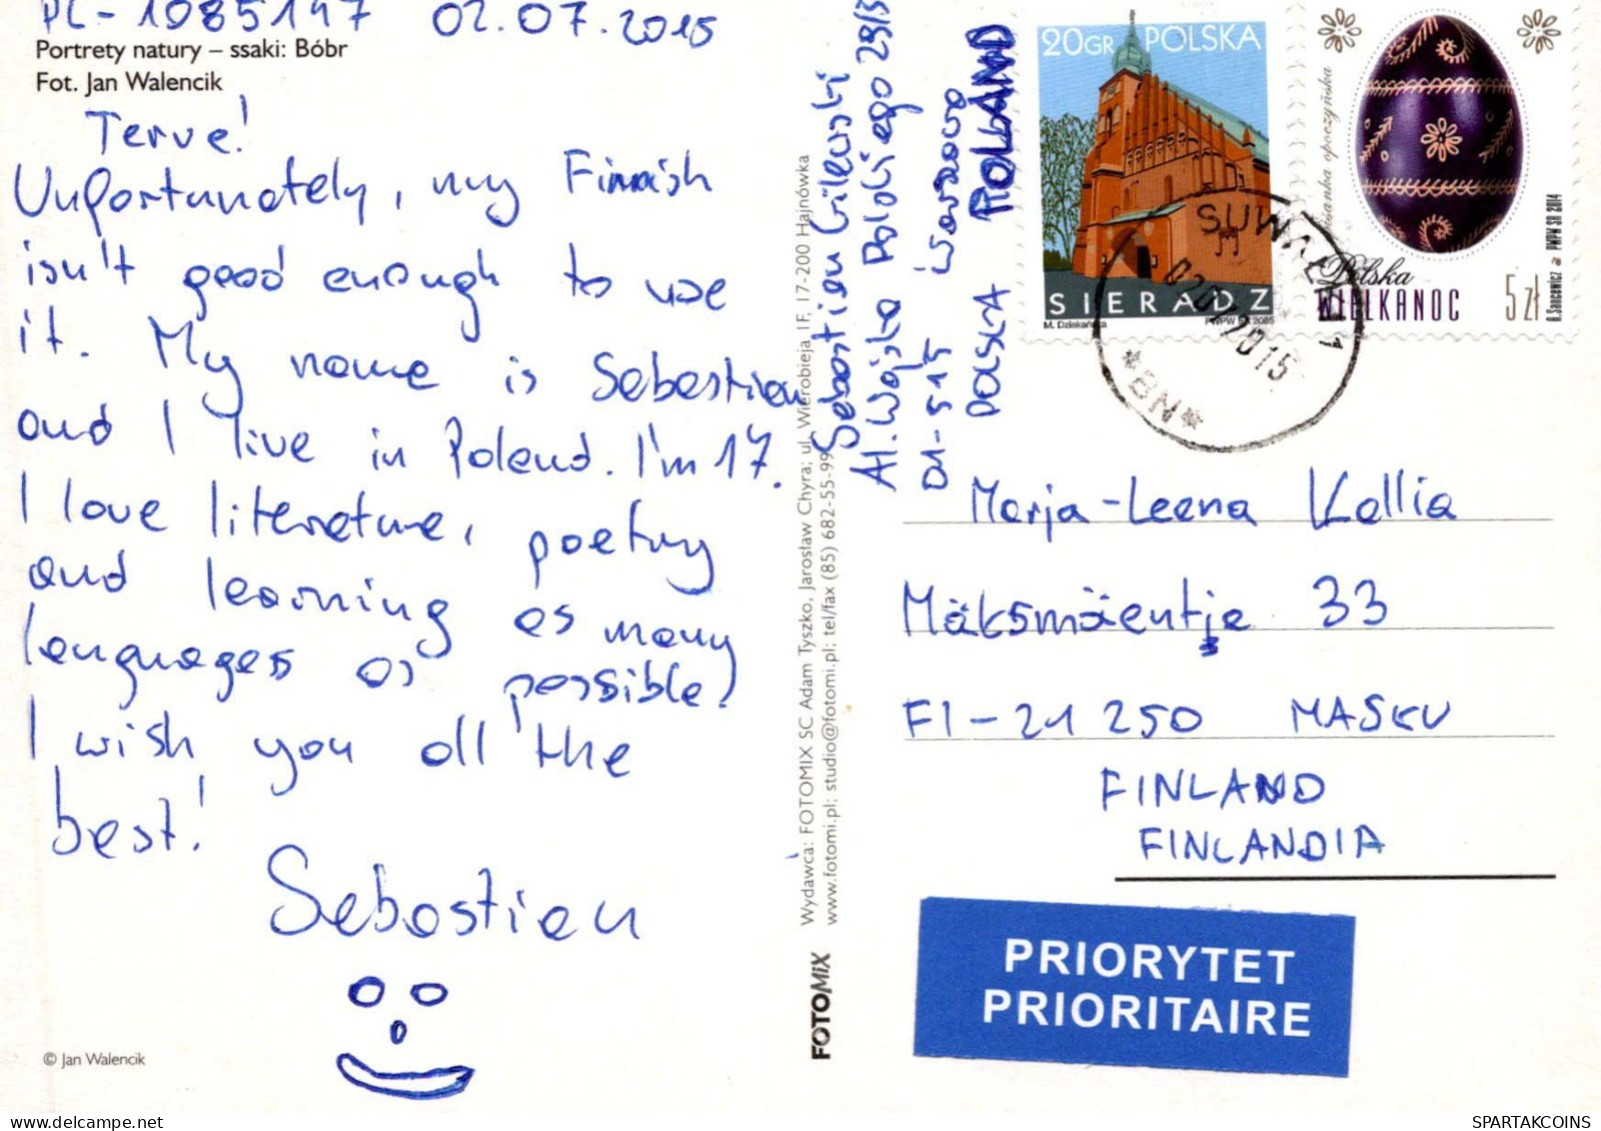 PL-1085147 02.07.2015
Portrety natury – ssaki: Bóbr
Fot. Jan Walencik
Terve!
Unfortunately, my Finnish
isn't good enough to use
it. My name is Sebastian
and I live in Poland. I'm 17.
I love literature, poetry
and learning as many
languages as possible!
I wish you all the
best!
Sebastian
© Jan Walencik
Wydawca: FOTOMIX SC Adam Tyszko, Jarosław Chyra; ul. Wierobieja 1F, 17-200 Hajnówka
www.fotomi.pl; studio@fotomi.pl; tel/fax (85) 682-55-99
FOTOMIX
Sebastian
Al. Wojska Polskiego 29/3
01-515 Warszawa
POLSKA POLAND
20GR POLSKA
SIERADZ
M. Dziekańska PWPW SA 2005
pisanka opoczyńska
Polska
WIELKANOC 5 zł
PWPW SA 2014
SUWAŁKI 1
02.07.2015
*BN*
Marja-Leena Kallia
Mäksmäentie 33
FI-21 250 MASKU
FINLAND
FINLANDIA
PRIORYTET
PRIORITAIRE
SPARTAKCOINS